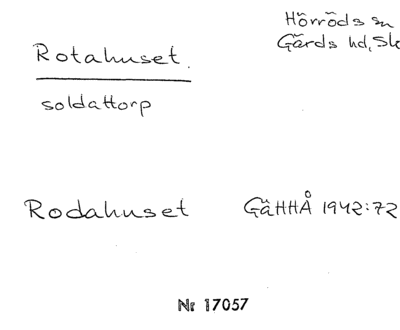 Hörröds sn
Gärds hd, Sk
Rotahuset.
soldattorp
Rodahuset GäHHÅ 1942:72
Nr 17057